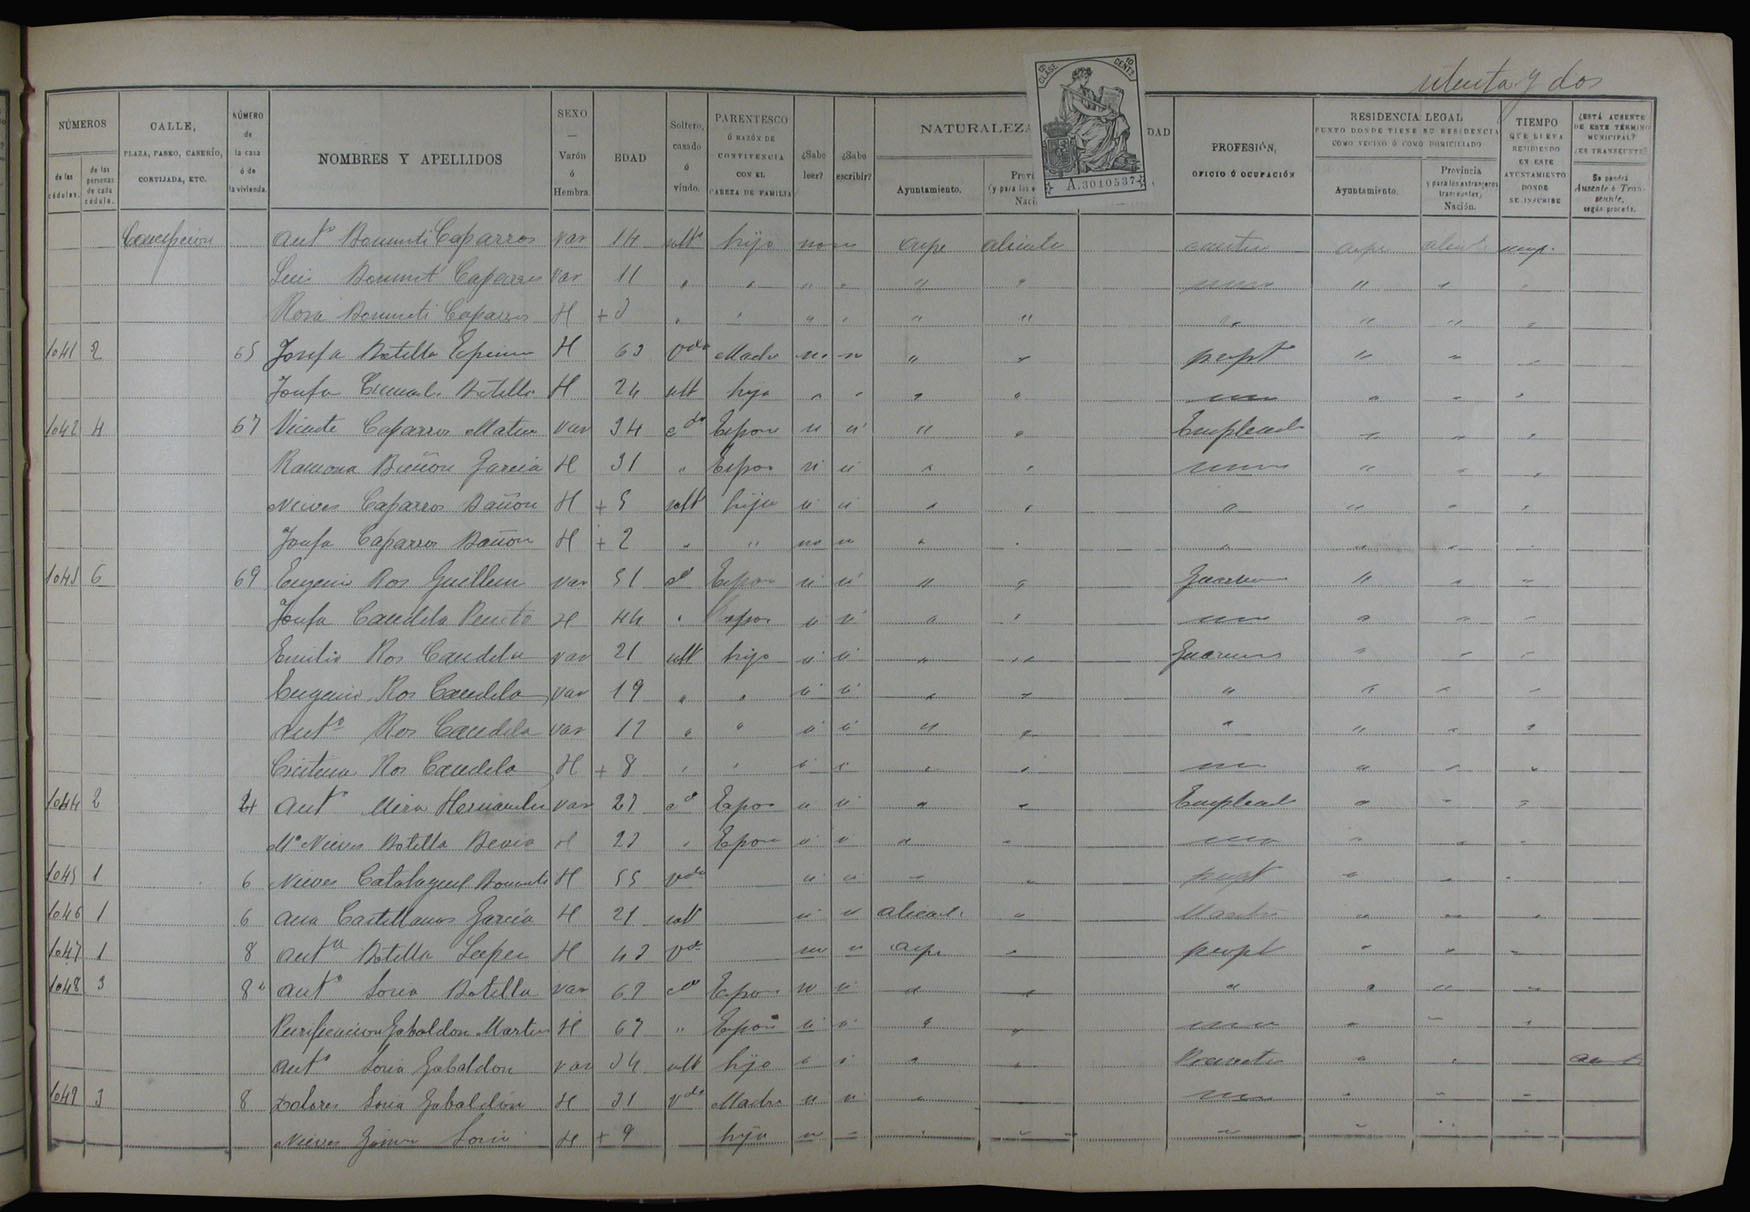 y dos
NÚMEROS
de las cédulas.
de las personas de cada cédula.
CALLE, PLAZA, PASEO, CASERÍO, CORTIJADA, ETC.
NÚMERO de la casa ó de la vivienda.
NOMBRES Y APELLIDOS
SEXO — Varón ó Hembra.
EDAD
Soltero, casado ó viudo.
PARENTESCO Ó RAZÓN DE CONVIVENCIA CON EL CABEZA DE FAMILIA
¿Sabe leer?
¿Sabe escribir?
NATURALEZA
Ayuntamiento.
DAD
12ª CLASE 10 CENTS
A.3010537
PROFESIÓN, OFICIO Ó OCUPACIÓN
RESIDENCIA LEGAL
PUNTO DONDE TIENE SU RESIDENCIA COMO VECINO Ó COMO DOMICILIADO
Ayuntamiento.
Provincia y para los extranjeros transeuntes, Nación.
TIEMPO QUE LLEVA RESIDIENDO EN ESTE AYUNTAMIENTO DONDE SE INSCRIBE
¿ESTÁ AUSENTE DE ESTE TÉRMINO MUNICIPAL? ¿ES TRANSEUNTE?
Se pondrá Ausente ó Transeunte, según proceda.
Concepcion Antº Bonmati Caparros var 14 soltº hijo no no aspe alicante aspe
Luis Bonmati Caparros var 11 " " " " " " " " "
Rosa Bonmati Caparros H + 3 " " " " " " " " "
1041 2 65 Josefa Botella H 63 Vda Madre no no " " " " "
Josefa Botella H 24 solt hija " " " " " " "
1042 4 67 Vicente Caparros Mateo var 34 cdo Esposo si si " " Empleado " " "
Ramona Bañon Garcia H 31 " Esposa si si " " " " "
Nieves Caparros Bañon H + 5 solt hija si si " " " " " "
Josefa Caparros Bañon H + 2 " " no no " " " " " "
1043 6 69 Eugenio Ros Guillen var 51 cdo Esposo si si " " " " "
Josefa Candela H 44 " Esposa si si " " " " "
Emilio Ros Candela var 21 solt hijo si si " " " " "
Eugenio Ros Candela var 19 " " si si " " " " " "
Antº Ros Candela var 12 " " si si " " " " " "
Ros Candela H + 8 " " si si " " " " "
1044 2 Antº Mira Hernandez var 27 cdo Esposo si si " " Empleado " " "
Mª Nieves Botella H 23 " Esposa si si " " " " "
1045 1 6 Nieves Bonmati H 55 Vda si si " " " " "
1046 1 6 Ana Castellanos Garcia H 21 solt si si alicante " Maestra " " "
1047 1 8 Antª Botella Lopez H 43 Vda no no aspe " " " "
1048 3 8 Antº Soria Botella var 69 cdo Esposo si si " " " " " "
Purificacion Gabaldon Martinez H 67 " Esposa si si " " " " "
Antº Soria Gabaldon var 34 solt hijo si si " " " "
1049 3 8 Dolores Soria Gabaldon H 31 Vda Madre si si " " " " "
Nieves Soria H + 9 hija no " " " " " " "